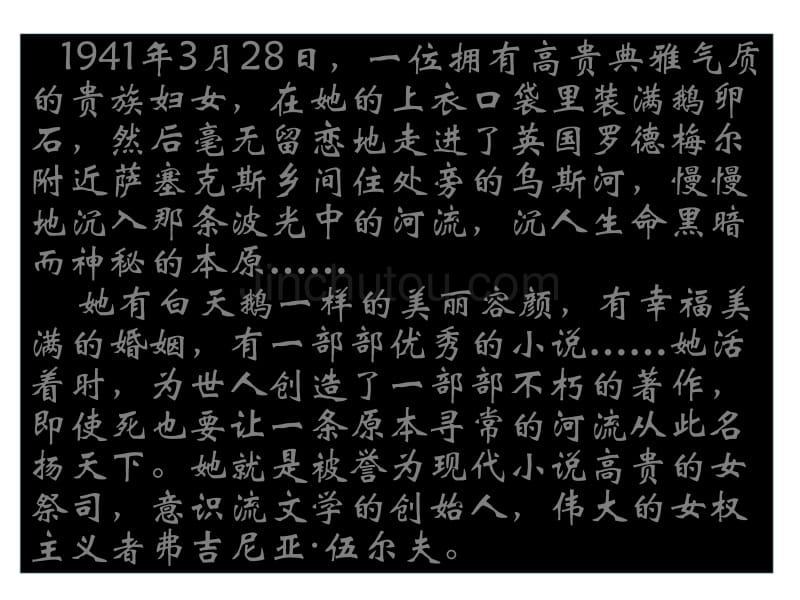 1941年3月28日，一位拥有高贵典雅气质
的贵族妇女，在她的上衣口袋里装满鹅卵
石，然后毫无留恋地走进了英国罗德梅尔
附近萨塞克斯乡间住处旁的乌斯河，慢慢
地沉入那条波光中的河流，沉人生命黑暗
而神秘的本原……
jinchutou.com
她有白天鹅一样的美丽容颜，有幸福美
满的婚姻，有一部部优秀的小说……她活
着时，为世人创造了一部部不朽的著作，
即使死也要让一条原本寻常的河流从此名
扬天下。她就是被誉为现代小说高贵的女
祭司，意识流文学的创始人，伟大的女权
主义者弗吉尼亚·伍尔夫。